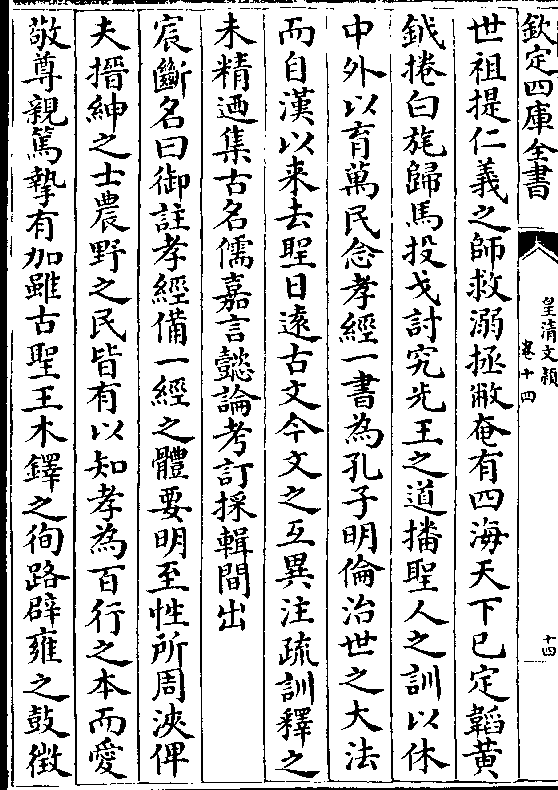 欽定四庫全書
皇清文穎
卷十四
十四
世祖提仁義之師救溺拯㴋奄有四海天下已定韜黄
鉞捲白旄歸馬投戈討究先王之道播聖人之訓以休
中外以育萬民念孝經一書為孔子明倫治世之大法
而自漢以来去聖日逺古文今文之互異注疏訓釋之
未精迺集古名儒嘉言懿論考訂採輯間出
宸斷名曰御註孝經備一經之體要明至性所周浹俾
夫搢紳之士農野之民皆有以知孝為百行之本而愛
敬尊親篤摯有加雖古聖王木鐸之徇路辟雍之鼓徴